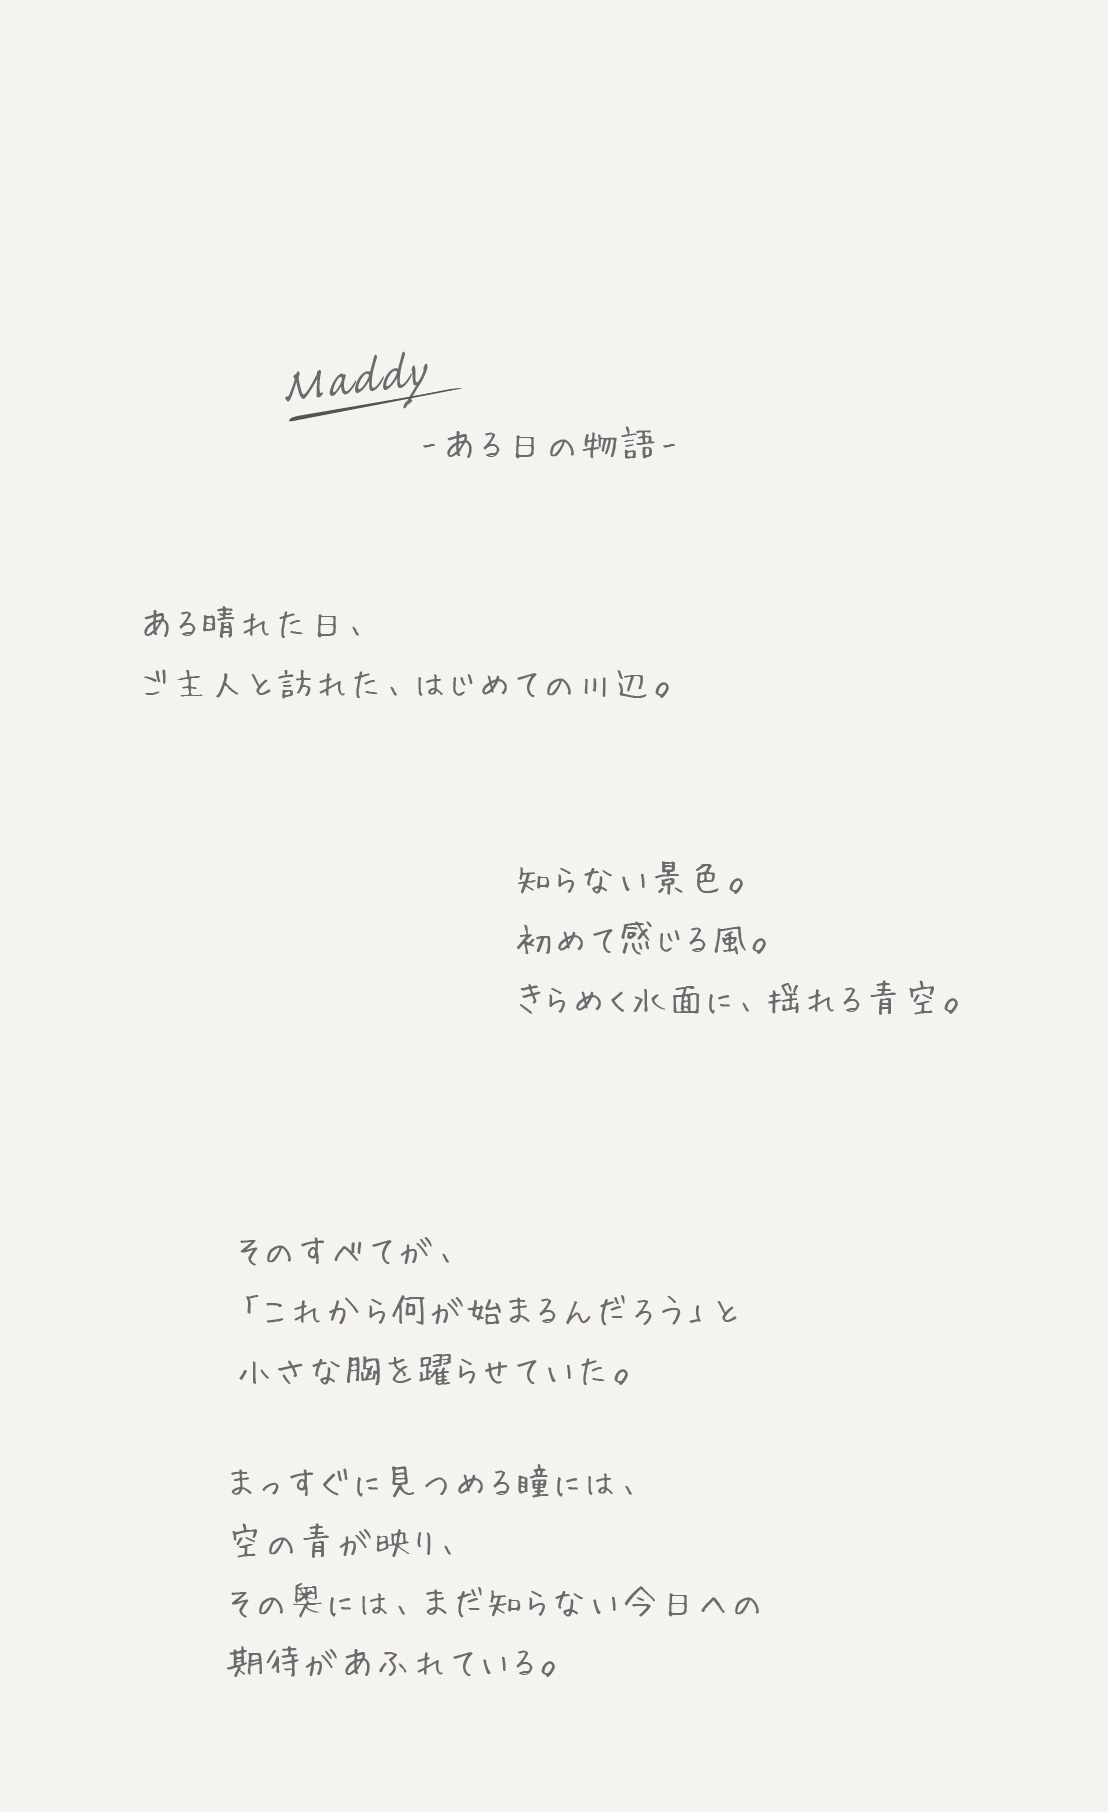 Maddy
-ある日の物語-
ある晴れた日、
ご主人と訪れた、はじめての川辺。
知らない景色。
初めて感じる風。
きらめく水面に、揺れる青空。
そのすべてが、
「これから何が始まるんだろう」と
小さな胸を躍らせていた。
まっすぐに見つめる瞳には、
空の青が映り、
その奥には、まだ知らない今日への
期待があふれている。